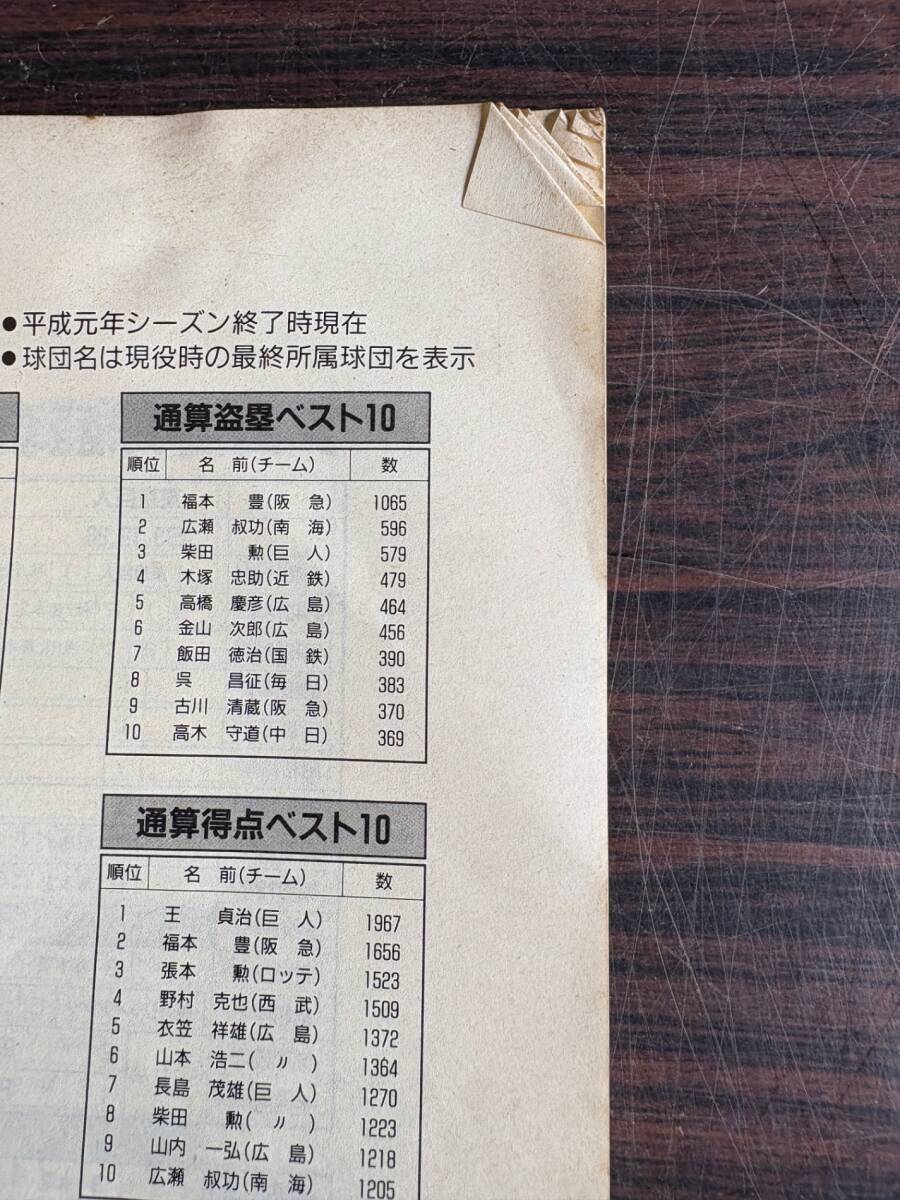 ●平成元年シーズン終了時現在
●球団名は現役時の最終所属球団を表示
通算盗塁ベスト10
順位 名 前(チーム) 数
1 福本 豊(阪 急) 1065
2 広瀬 叔功(南 海) 596
3 柴田 勲(巨 人) 579
4 木塚 忠助(近 鉄) 479
5 高橋 慶彦(広 島) 464
6 金山 次郎(広 島) 456
7 飯田 徳治(国 鉄) 390
8 呉 昌征(毎 日) 383
9 古川 清蔵(阪 急) 370
10 高木 守道(中 日) 369
通算得点ベスト10
順位 名 前(チーム) 数
1 王 貞治(巨 人) 1967
2 福本 豊(阪 急) 1656
3 張本 勲(ロッテ) 1523
4 野村 克也(西 武) 1509
5 衣笠 祥雄(広 島) 1372
6 山本 浩二( 〃 ) 1364
7 長島 茂雄(巨 人) 1270
8 柴田 勲( 〃 ) 1223
9 山内 一弘(広 島) 1218
10 広瀬 叔功(南 海) 1205